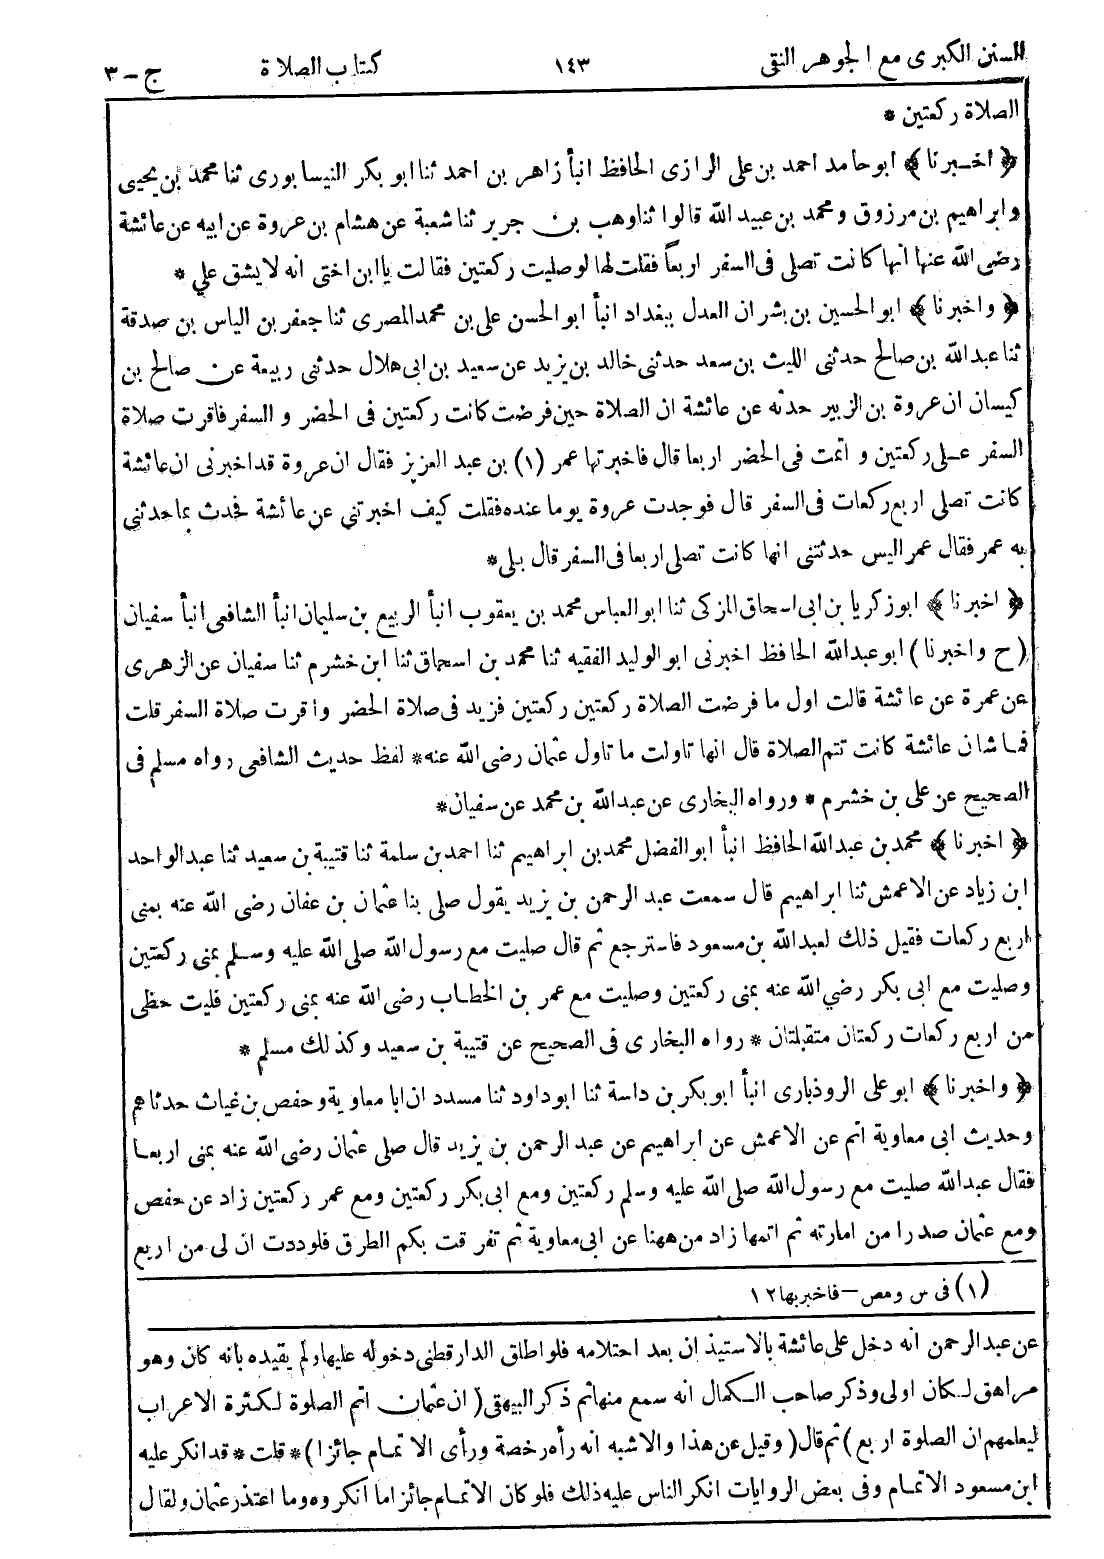 السنن الكبرى مع الجوهر النقى ١٤٣ كتاب الصلاة ج-٣
الصلاة ركعتين *
﴿ اخبرنا ﴾ ابوحامد احمد بن على الرازى الحافظ انبأ زاهر بن احمد ثنا ابو بكر النيسابورى ثنا محمد بن يحيى
وابراهيم بن مرزوق ومحمد بن عبيد الله قالوا ثنا وهب بن جرير ثنا شعبة عن هشام بن عروة عن ابيه عن عائشة
رضى الله عنها انها كانت تصلى فى السفر اربعاً فقلت لها لوصليت ركعتين فقالت يا ابن اختى انه لا يشق علي *
﴿ واخبرنا ﴾ ابو الحسين بن بشران العدل ببغداد انبأ ابو الحسن على بن محمد المصرى ثنا جعفر بن الياس بن صدقة
ثنا عبد الله بن صالح حدثنى الليث بن سعد حدثنى خالد بن يزيد عن سعيد بن ابى هلال حدثنى ربيعة عن صالح بن
كيسان ان عروة بن الزبير حدثه عن عائشة ان الصلاة حين فرضت كانت ركعتين فى الحضر و السفر فاقرت صلاة
السفر على ركعتين و اتمت فى الحضر اربعا قال فاخبرتها عمر (١) بن عبد العزيز فقال ان عروة قد اخبرنى ان عائشة
كانت تصلى اربع ركعات فى السفر قال فوجدت عروة يوما عنده فقلت كيف اخبرتني عن عائشة فحدث بما حدثنى
به عمر فقال عمر اليس حدثتنى انها كانت تصلى اربعا فى السفر قال بلى *
﴿ اخبرنا ﴾ ابو زكريا بن ابى اسحاق المزكى ثنا ابو العباس محمد بن يعقوب انبأ الربيع بن سليمان انبأ الشافعى انبأ سفيان
(ح واخبرنا) ابو عبد الله الحافظ اخبرنى ابو الوليد الفقيه ثنا محمد بن اسحاق ثنا ابن خشرم ثنا سفيان عن الزهرى
عن عمرة عن عائشة قالت اول ما فرضت الصلاة ركعتين ركعتين فزيد فى صلاة الحضر واقرت صلاة السفر قلت
فما شان عائشة كانت تتم الصلاة قال انها تاولت ما تاول عثمان رضى الله عنه * لفظ حديث الشافعى رواه مسلم فى
الصحيح عن على بن خشرم * ورواه البخارى عن عبدالله بن محمد عن سفيان *
﴿ اخبرنا ﴾ محمد بن عبدالله الحافظ انبأ ابو الفضل محمد بن ابراهيم ثنا احمد بن سلمة ثنا قتيبة بن سعيد ثنا عبد الواحد
ابن زياد عن الاعمش ثنا ابراهيم قال سمعت عبد الرحمن بن يزيد يقول صلى بنا عثمان بن عفان رضى الله عنه بمنى
اربع ركعات فقيل ذلك لعبد الله بن مسعود فاسترجع ثم قال صليت مع رسول الله صلى الله عليه وسلم بمنى ركعتين
وصليت مع ابى بكر رضي الله عنه بمنى ركعتين وصليت مع عمر بن الخطاب رضى الله عنه بمنى ركعتين فليت حظى
من اربع ركعات ركعتان متقبلتان * رواه البخارى فى الصحيح عن قتيبة بن سعيد وكذلك مسلم *
﴿ واخبرنا ﴾ ابو على الروذبارى انبأ ابو بكر بن داسة ثنا ابو داود ثنا مسدد ان ابا معاوية وحفص بن غياث حدثاهم
وحديث ابى معاوية اتم عن الاعمش عن ابراهيم عن عبد الرحمن بن يزيد قال صلى عثمان رضى الله عنه بمنى اربعا
فقال عبد الله صليت مع رسول الله صلى الله عليه وسلم ركعتين ومع ابى بكر ركعتين ومع عمر ركعتين زاد عن حفص
ومع عثمان صدرا من امارته ثم اتمها زاد من ههنا عن ابى معاوية ثم تفرقت بكم الطرق فلوددت ان لى من اربع
(١) فى س ومص - فاخبر بها ١٢
عن عبد الرحمن انه دخل على عائشة بالاستيذان بعد احتلامه فلو اطلق الدارقطنى دخوله عليها ولم يقيده بأنه كان وهو
مراهق لكان اولى وذكر صاحب الكمال انه سمع منها ثم ذكر البيهقى (ان عثمان اتم الصلوة لكثرة الاعراب
ليعلمهم ان الصلوة اربع) ثم قال (وقيل عن هذا والاشبه انه رأه رخصة ورأى الاتمام جائزا) * قلت * قد انكر عليه
ابن مسعود الاتمام وفى بعض الروايات انكر الناس عليه ذلك فلو كان الاتمام جائزا ما انكروه وما اعتذر عثمان ولقال